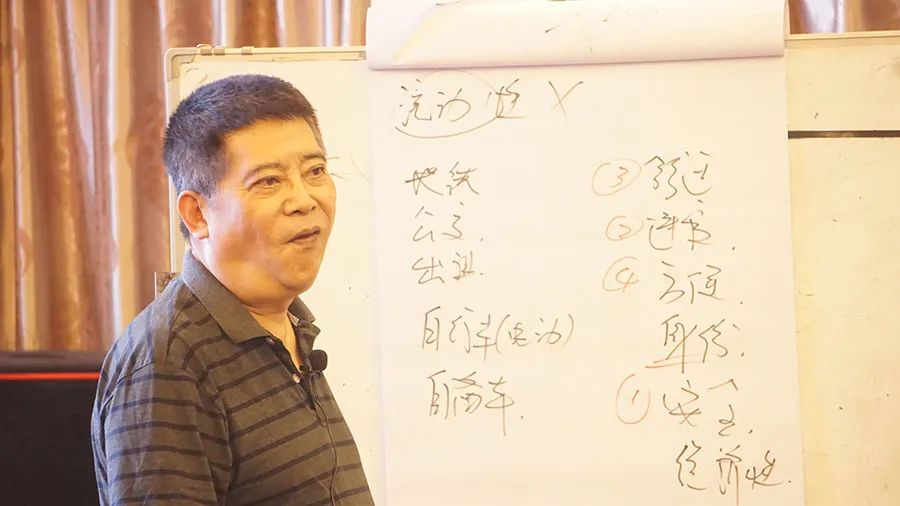 流动性 X
地铁
公交
出租
自行车(电动)
自备车
③ 舒适
②
④ 方便
身份
① 安全
经济性